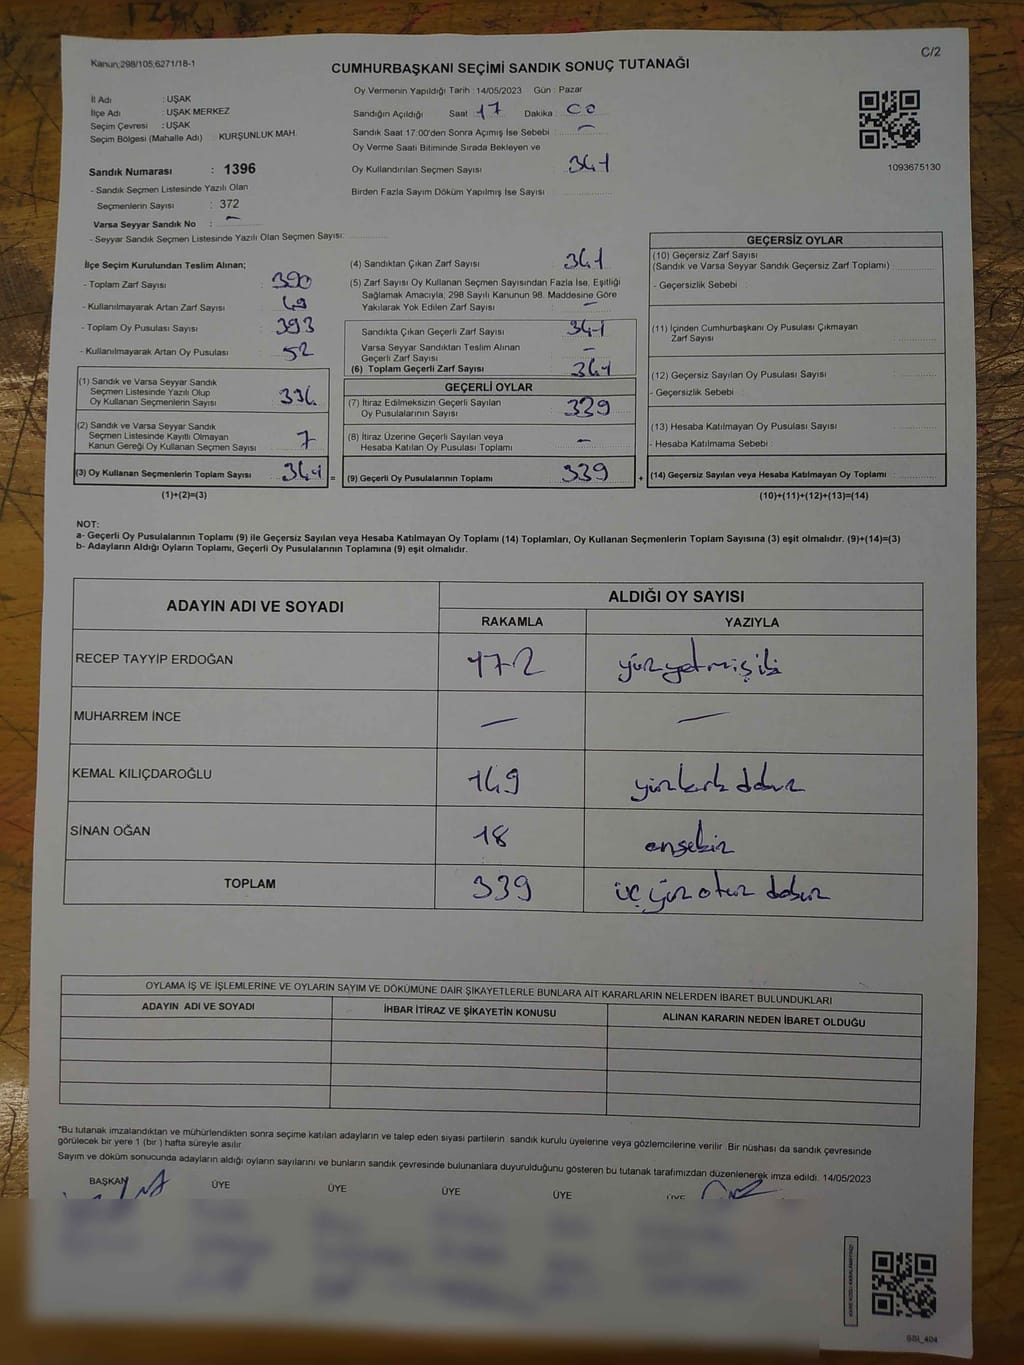 Kanun;298/105;6271/18-1
C/2
CUMHURBAŞKANI SEÇİMİ SANDIK SONUÇ TUTANAĞI
İl Adı : UŞAK
İlçe Adı : UŞAK MERKEZ
Seçim Çevresi : UŞAK
Seçim Bölgesi (Mahalle Adı) : KURŞUNLUK MAH.
Oy Vermenin Yapıldığı Tarih : 14/05/2023 Gün : Pazar
Sandığın Açıldığı Saat 17 Dakika : 00
Sandık Saat 17:00'den Sonra Açımış İse Sebebi : —
Oy Verme Saati Bitiminde Sırada Bekleyen ve
Oy Kullandırılan Seçmen Sayısı : 341
Birden Fazla Sayım Döküm Yapılmış İse Sayısı
1093675130
Sandık Numarası : 1396
- Sandık Seçmen Listesinde Yazılı Olan
Seçmenlerin Sayısı : 372
Varsa Seyyar Sandık No : —
- Seyyar Sandık Seçmen Listesinde Yazılı Olan Seçmen Sayısı:
İlçe Seçim Kurulundan Teslim Alınan;
- Toplam Zarf Sayısı : 390
- Kullanılmayarak Artan Zarf Sayısı : 49
- Toplam Oy Pusulası Sayısı : 393
- Kullanılmayarak Artan Oy Pusulası : 52
(1) Sandık ve Varsa Seyyar Sandık
Seçmen Listesinde Yazılı Olup
Oy Kullanan Seçmenlerin Sayısı : 334
(2) Sandık ve Varsa Seyyar Sandık
Seçmen Listesinde Kayıtlı Olmayan
Kanun Gereği Oy Kullanan Seçmen Sayısı : 7
(3) Oy Kullanan Seçmenlerin Toplam Sayısı : 341 =
(1)+(2)=(3)
(4) Sandıktan Çıkan Zarf Sayısı : 341
(5) Zarf Sayısı Oy Kullanan Seçmen Sayısından Fazla İse, Eşitliği
Sağlamak Amacıyla, 298 Sayılı Kanunun 98. Maddesine Göre
Yakılarak Yok Edilen Zarf Sayısı : —
Sandıkta Çıkan Geçerli Zarf Sayısı : 341
Varsa Seyyar Sandıktan Teslim Alınan
Geçerli Zarf Sayısı : —
(6) Toplam Geçerli Zarf Sayısı : 341
GEÇERLİ OYLAR
(7) İtiraz Edilmeksizin Geçerli Sayılan
Oy Pusulalarının Sayısı : 339
(8) İtiraz Üzerine Geçerli Sayılan veya
Hesaba Katılan Oy Pusulası Toplamı : —
(9) Geçerli Oy Pusulalarının Toplamı : 339 +
GEÇERSİZ OYLAR
(10) Geçersiz Zarf Sayısı
(Sandık ve Varsa Seyyar Sandık Geçersiz Zarf Toplamı)
- Geçersizlik Sebebi :
(11) İçinden Cumhurbaşkanı Oy Pusulası Çıkmayan
Zarf Sayısı :
(12) Geçersiz Sayılan Oy Pusulası Sayısı :
- Geçersizlik Sebebi :
(13) Hesaba Katılmayan Oy Pusulası Sayısı :
- Hesaba Katılmama Sebebi :
(14) Geçersiz Sayılan veya Hesaba Katılmayan Oy Toplamı :
(10)+(11)+(12)+(13)=(14)
NOT:
a- Geçerli Oy Pusulalarının Toplamı (9) ile Geçersiz Sayılan veya Hesaba Katılmayan Oy Toplamı (14) Toplamları, Oy Kullanan Seçmenlerin Toplam Sayısına (3) eşit olmalıdır. (9)+(14)=(3)
b- Adayların Aldığı Oyların Toplamı, Geçerli Oy Pusulalarının Toplamına (9) eşit olmalıdır.
ADAYIN ADI VE SOYADI
ALDIĞI OY SAYISI
RAKAMLA YAZIYLA
RECEP TAYYİP ERDOĞAN 172 yüzyetmişiki
MUHARREM İNCE — —
KEMAL KILIÇDAROĞLU 149 yüzkırk dokuz
SİNAN OĞAN 18 onsekiz
TOPLAM 339 üç yüz otuz dokuz
OYLAMA İŞ VE İŞLEMLERİNE VE OYLARIN SAYIM VE DÖKÜMÜNE DAİR ŞİKAYETLERLE BUNLARA AİT KARARLARIN NELERDEN İBARET BULUNDUKLARI
ADAYIN ADI VE SOYADI İHBAR İTİRAZ VE ŞİKAYETİN KONUSU ALINAN KARARIN NEDEN İBARET OLDUĞU
*Bu tutanak imzalandıktan ve mühürlendikten sonra seçime katılan adayların ve talep eden siyasi partilerin sandık kurulu üyelerine veya gözlemcilerine verilir. Bir nüshası da sandık çevresinde
görülecek bir yere 1 (bir ) hafta süreyle asılır.
Sayım ve döküm sonucunda adayların aldığı oyların sayılarını ve bunların sandık çevresinde bulunanlara duyurulduğunu gösteren bu tutanak tarafımızdan düzenlenerek imza edildi. 14/05/2023
BAŞKAN ÜYE ÜYE ÜYE ÜYE ÜYE
SSI_404